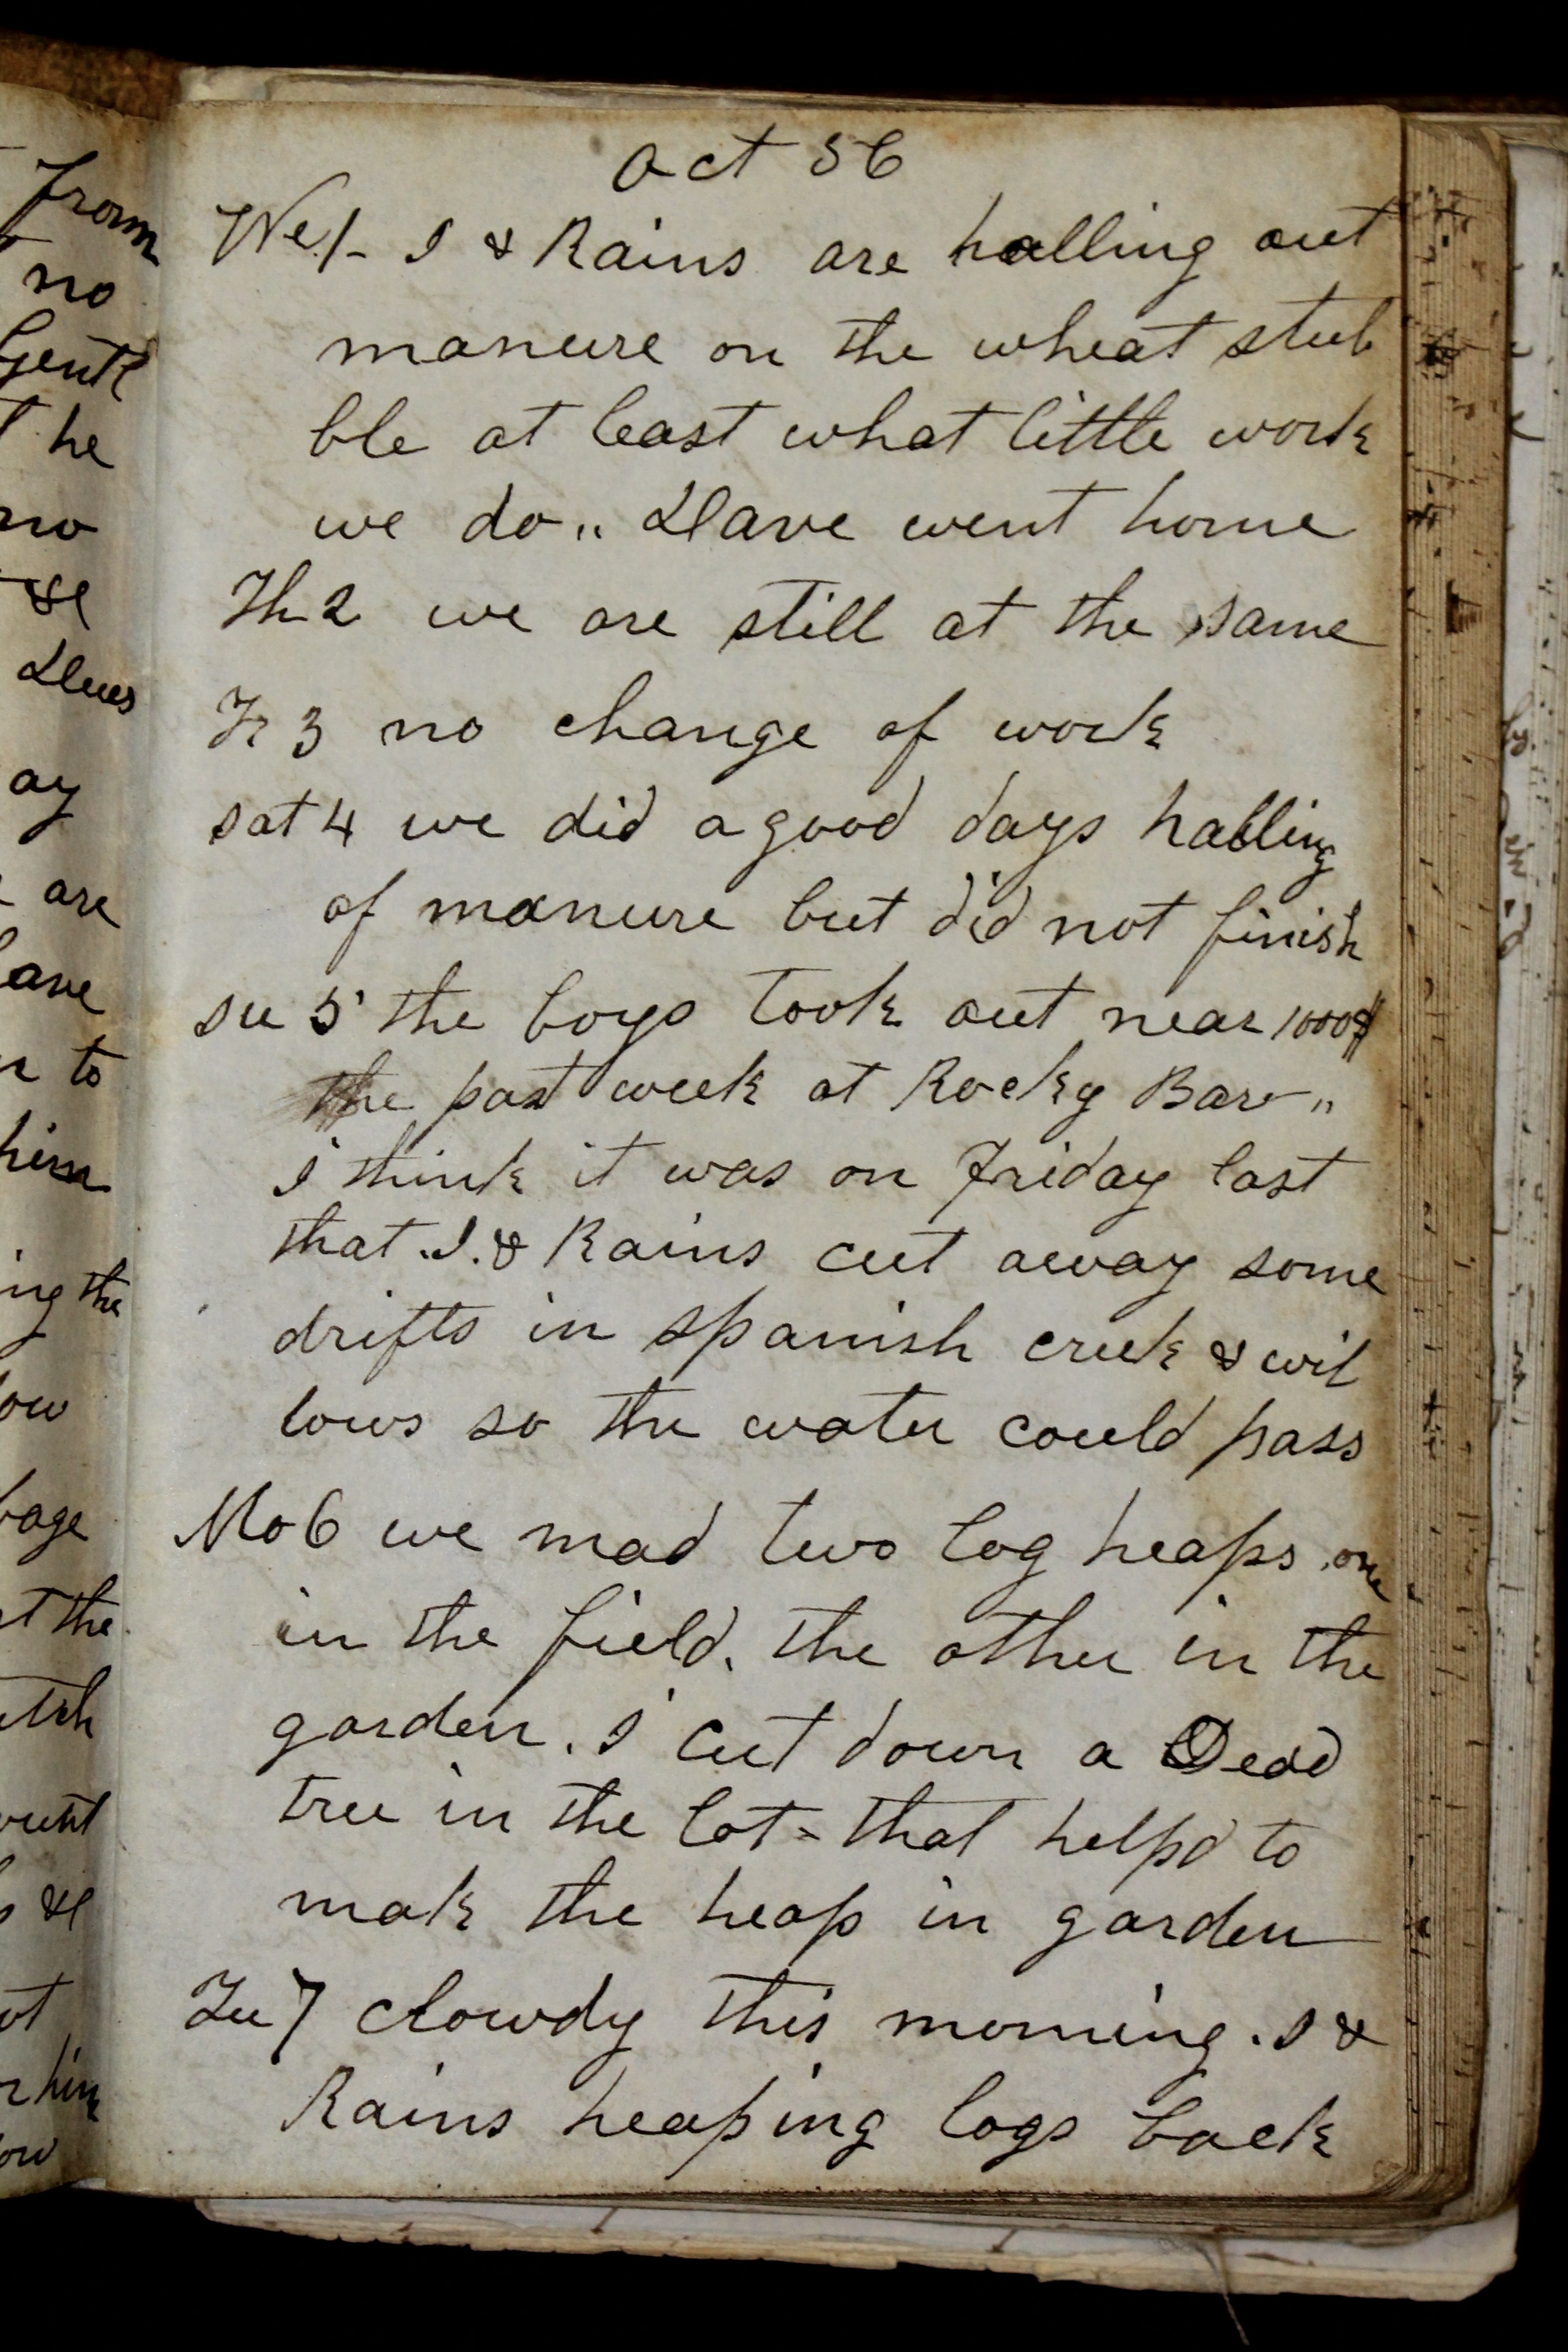 from
no
Gentl
he
no
&
Dues
ay
are
ave
to
him
ing the
ow
bage
t the
&
him
ow
Oct 56
We 1- I & Rains are halling out
manure on the wheat stub
ble at least what little work
we do,, Dave went home
Th 2 we are still at the same
Fr 3 no change of work
sat 4 we did a good days halling
of manure but did not finish
su 5 the boys took out near 1000$
the past week at Rocky Bar,,
I think it was on Friday last
that .I. & Rains cut away some
drifts in spanish creek & wil
lows so the water could pass
Mo 6 we mad two log heaps one
in the field. the other in the
garden. I cut down a Dead
tree in the lot = that helpd to
mak the heap in garden
Tu 7 clowdy this morning. I &
Rains heaping logs back